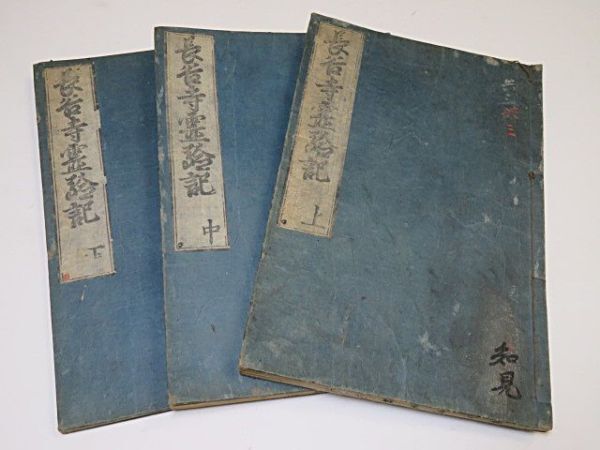 長谷寺霊験記
上
知見
長谷寺霊験記
中
長谷寺霊験記
下